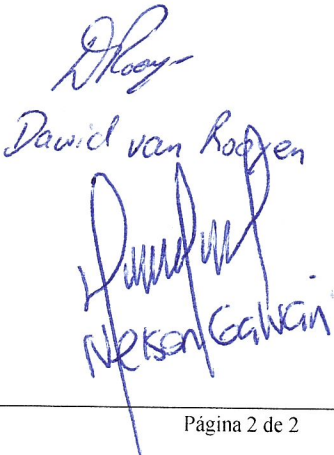 DRooy
Dawid van Rooyen
Nelson Galvan
Página 2 de 2